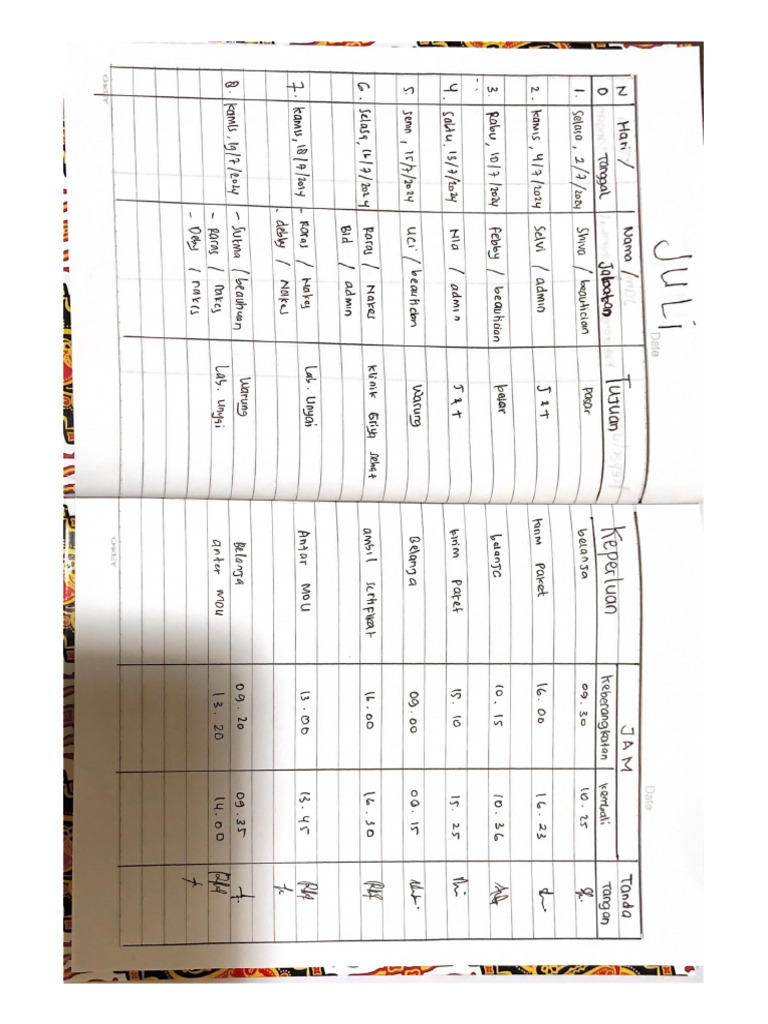 JULI
Date
Date
No Hari / Tanggal Nama / Jabatan Tujuan Keperluan JAM Keberangkatan Kembali Tanda Tangan
1. Selasa, 2/7/2024 Shiva / beautician pasar belanja 09.30 10.25
2. Kamis, 4/7/2024 Selvi / admin J&T kirim paket 16.00 16.23
3. Rabu, 10/7/2024 Febby / beautician pasar belanja 10.15 10.36
4. Sabtu, 13/7/2024 Nia / admin J&T kirim paket 15.10 15.25
5. Senin, 15/7/2024 Uci / beautician Warung Belanja 09.00 09.15
6. Selasa, 16/7/2024 Raras / Nakes Klinik Griya Sehat ambil sertifikat 16.00 16.30
Bid / admin
7. Kamis, 18/7/2024 - Raras / Nakes Lab. Unyai Antar MOU 13.00 13.45
- debby / Nakes
8. Kamis, 19/7/2024 - Sutma / beautician Warung Belanja 09.20 09.35
- raras / nakes Lab. Unyai anter MOU 13.20 14.00
- Deby / nakes
OKEY
OKEY